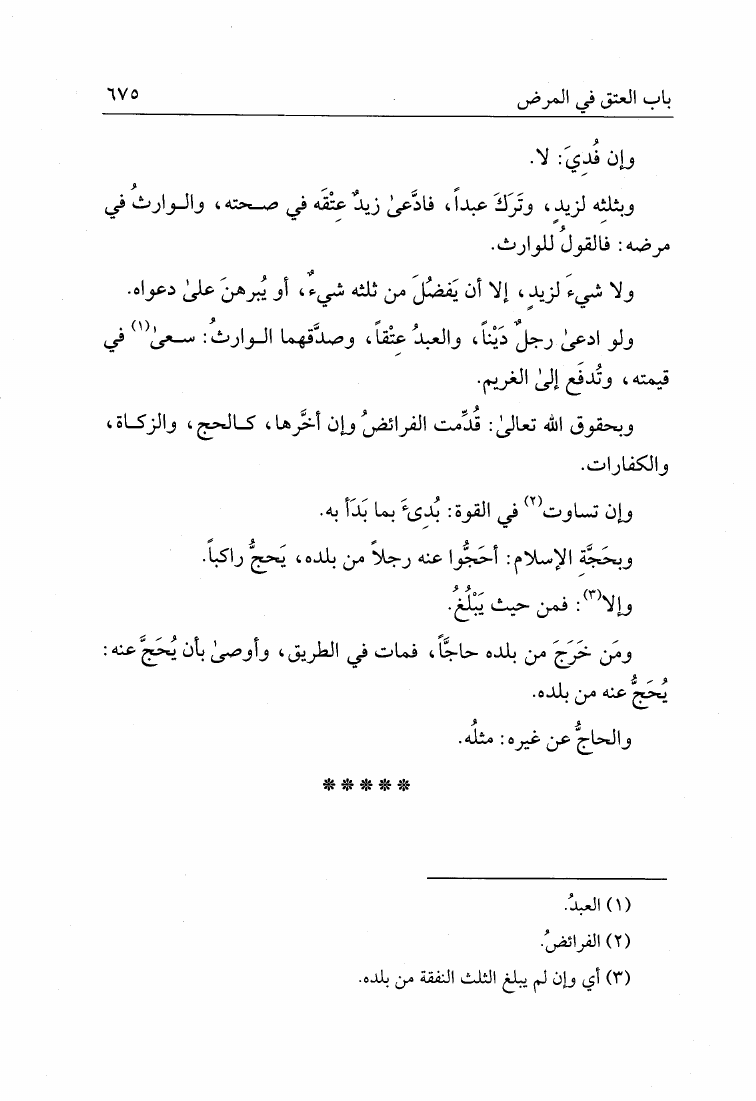 باب العتق في المرض ٦٧٥
وإن فُدِيَ: لا.
وبثلثه لزيدٍ، وتَرَكَ عبداً، فادَّعىٰ زيدٌ عِتْقَه في صحته، والوارثُ في
مرضه: فالقولُ للوارث.
ولا شيءَ لزيدٍ، إلا أن يَفضُلَ من ثلثه شيءٌ، أو يُبرهنَ علىٰ دعواه.
ولو ادعىٰ رجلٌ دَيْناً، والعبدُ عِتْقاً، وصدَّقهما الوارثُ: سعىٰ(١) في
قيمته، وتُدفَع إلىٰ الغريم.
وبحقوق الله تعالىٰ: قُدِّمت الفرائضُ وإن أخَّرها، كالحج، والزكاة،
والكفارات.
وإن تساوت(٢) في القوة: بُدِئَ بما بَدَأ به.
وبحَجَّةِ الإسلام: أحَجُّوا عنه رجلاً من بلده، يَحجُّ راكباً.
وإلا(٣): فمن حيث يَبْلُغُ.
ومَن خَرَجَ من بلده حاجَّاً، فمات في الطريق، وأوصىٰ بأن يُحَجَّ عنه:
يُحَجُّ عنه من بلده.
والحاجُّ عن غيره: مثلُه.
*****
(١) العبدُ.
(٢) الفرائضُ.
(٣) أي وإن لم يبلغ الثلث النفقة من بلده.